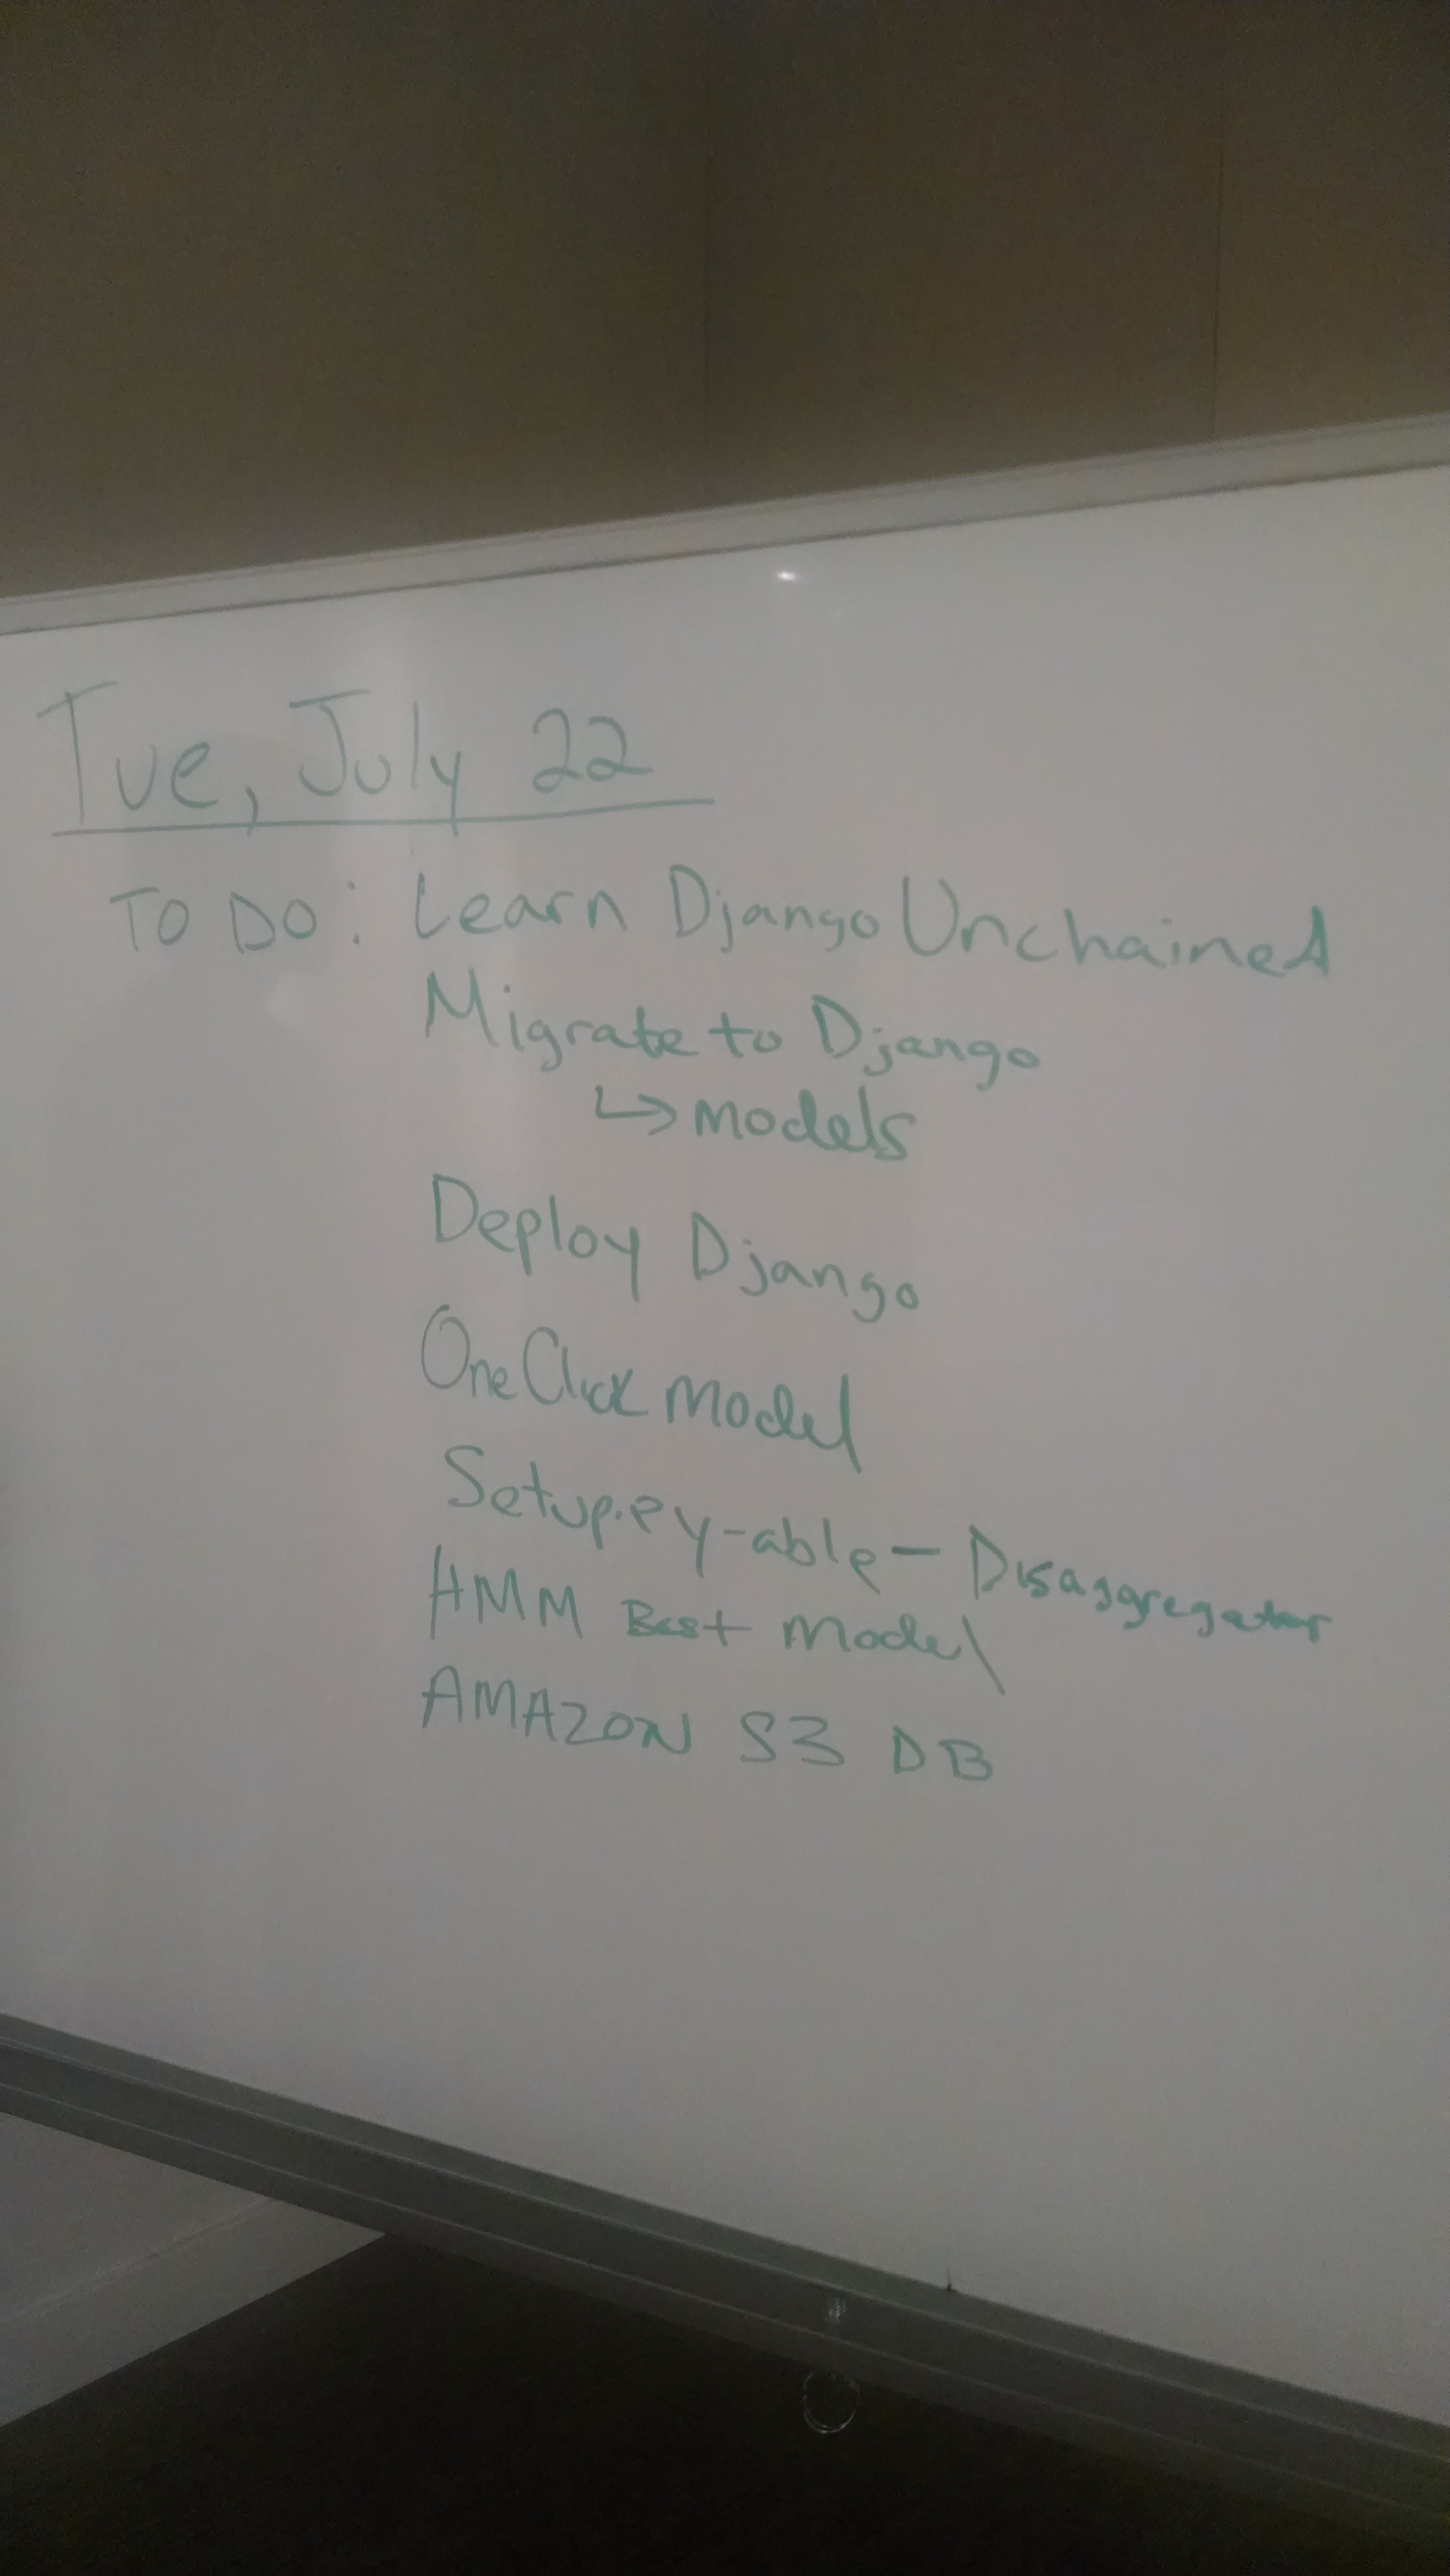 Tue, July 22
TO DO: Learn Django Unchained
Migrate to Django
↳ Models
Deploy Django
One Click Model
Setup.py-able - Disaggregator
HMM Best Model
AMAZON S3 DB